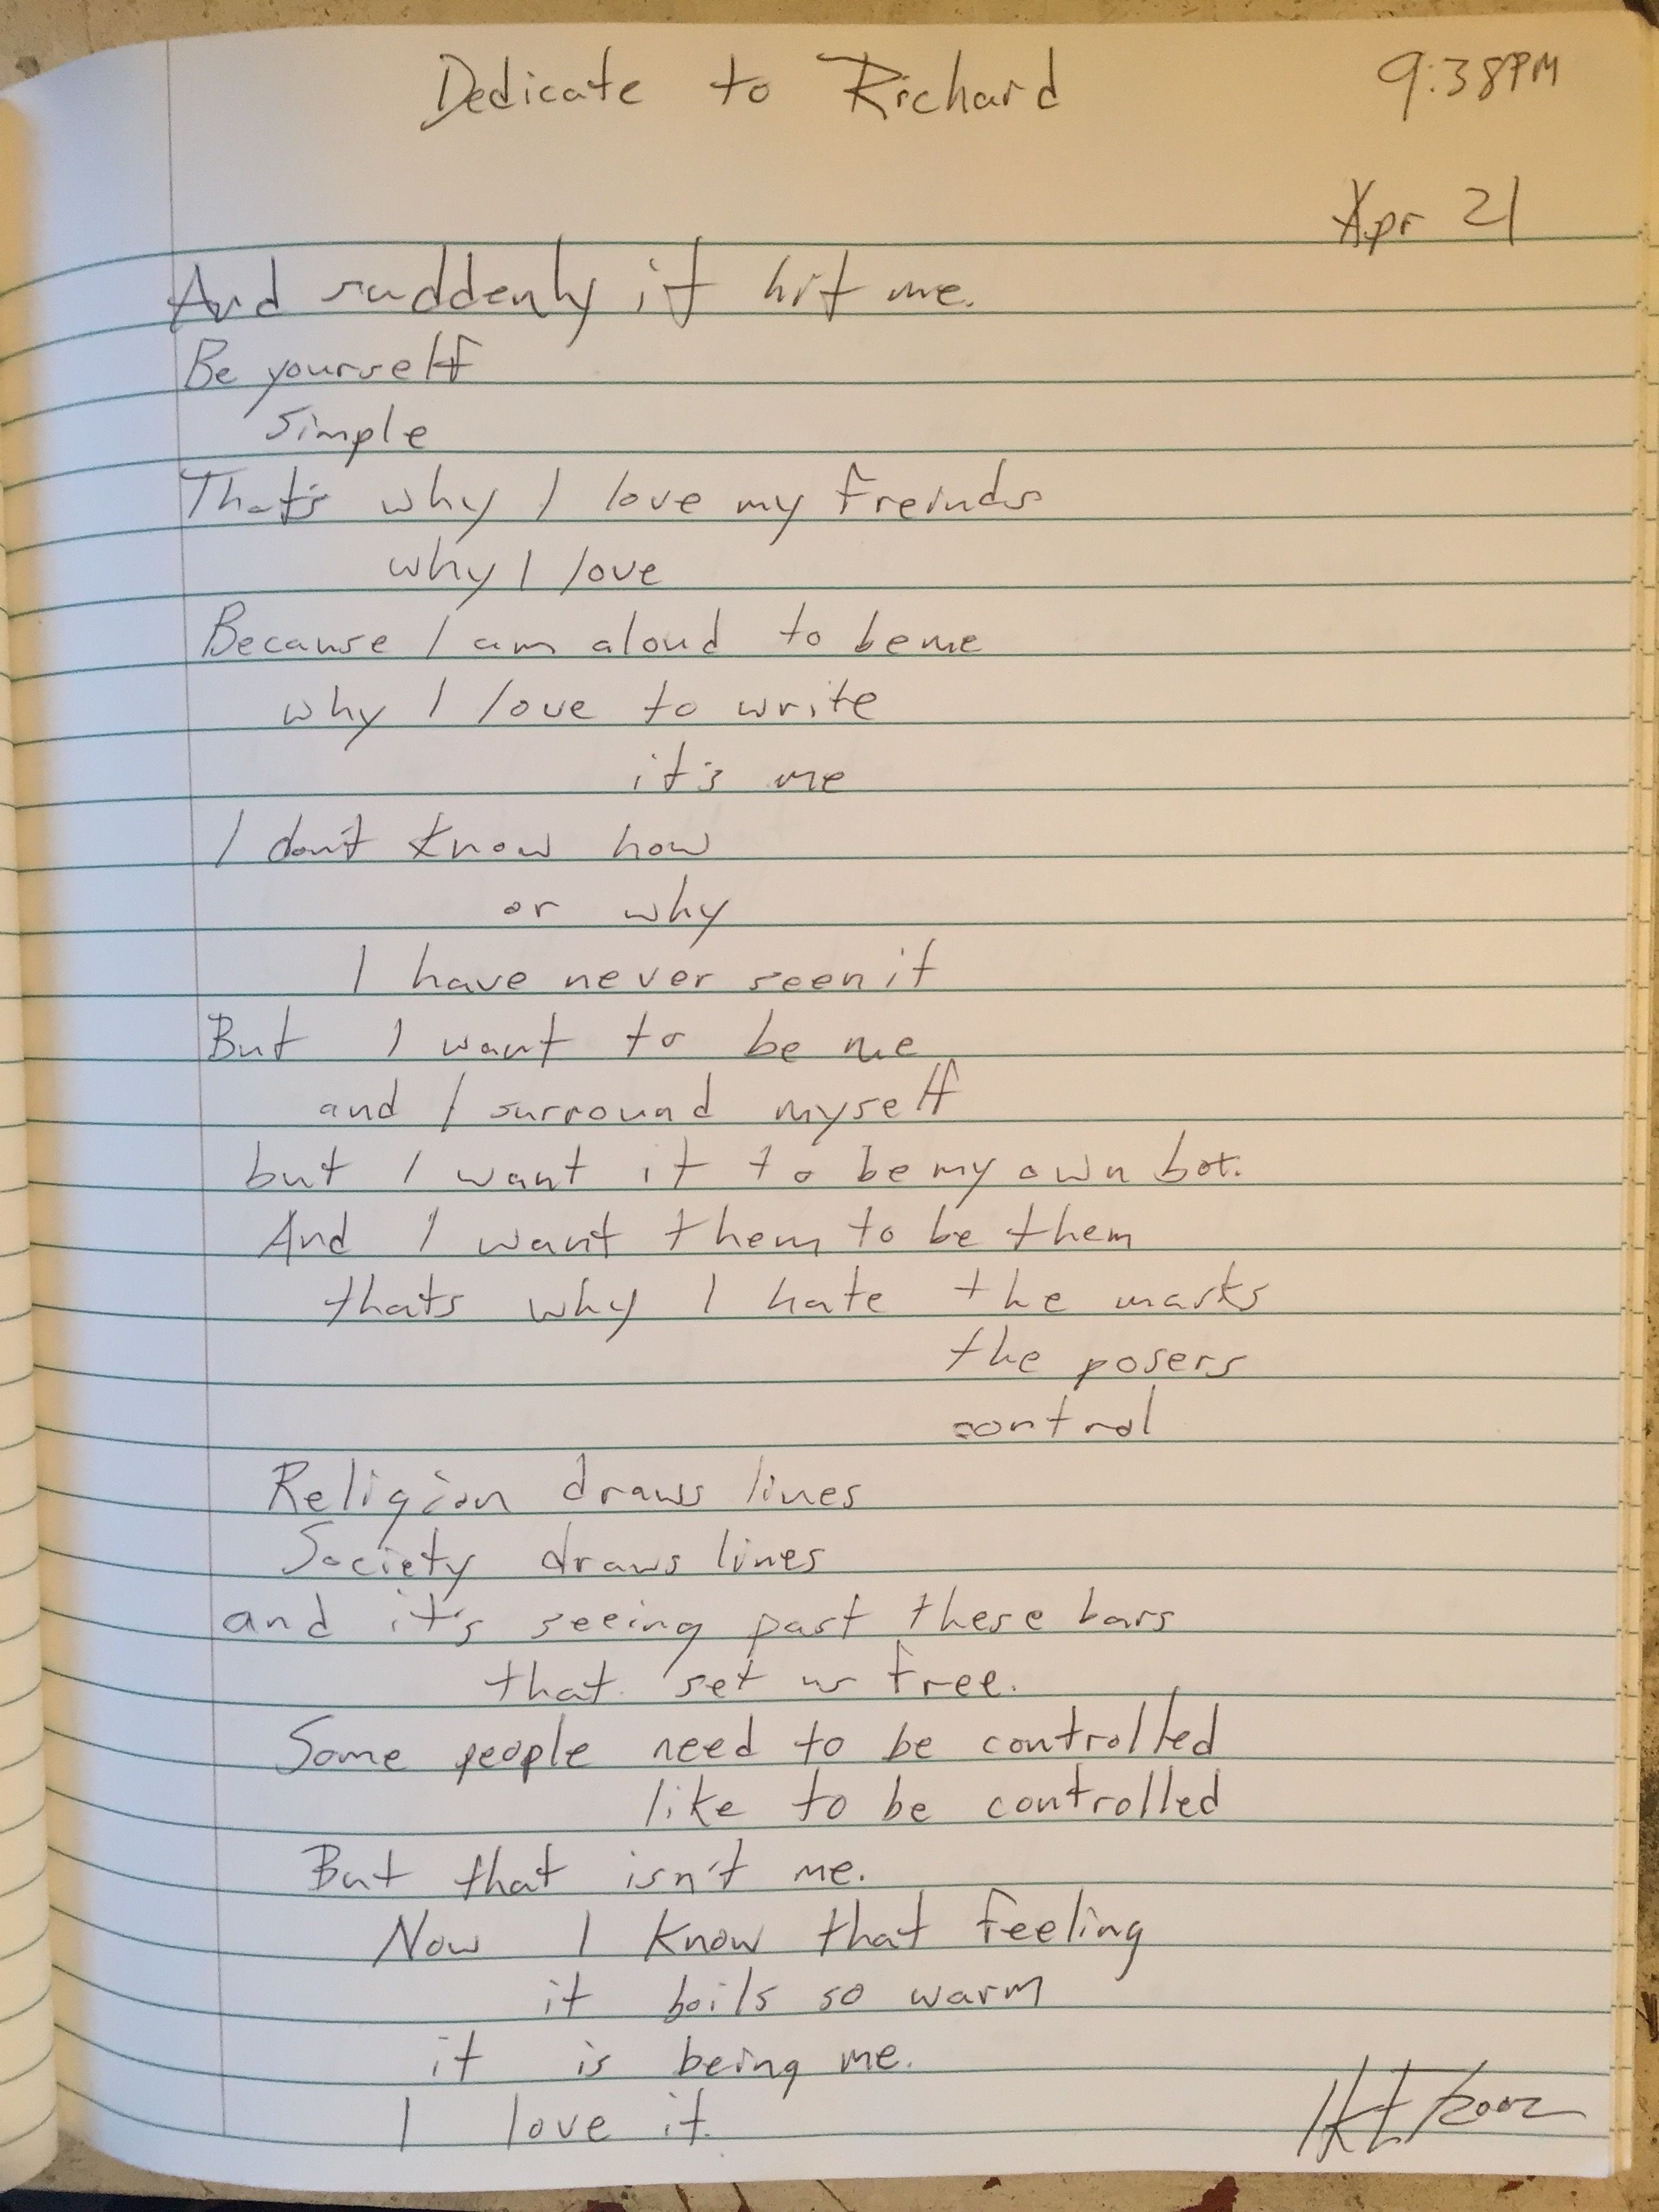 Dedicate to Richard
9:38PM
Apr 21
And suddenly it hit me.
Be yourself
Simple
That's why I love my freinds
why I love
Because I am aloud to be me
why I love to write
it's me
I don't know how
or why
I have never seen it
But I want to be me
and I surround myself
but I want it to be my own bot.
And I want them to be them
thats why I hate the masks
the posers
control
Religion draws lines
Society draws lines
and it's seeing past these bars
that set us free.
Some people need to be controlled
like to be controlled
But that isn't me.
Now I know that feeling
it boils so warm
it is being me.
I love it.
2002